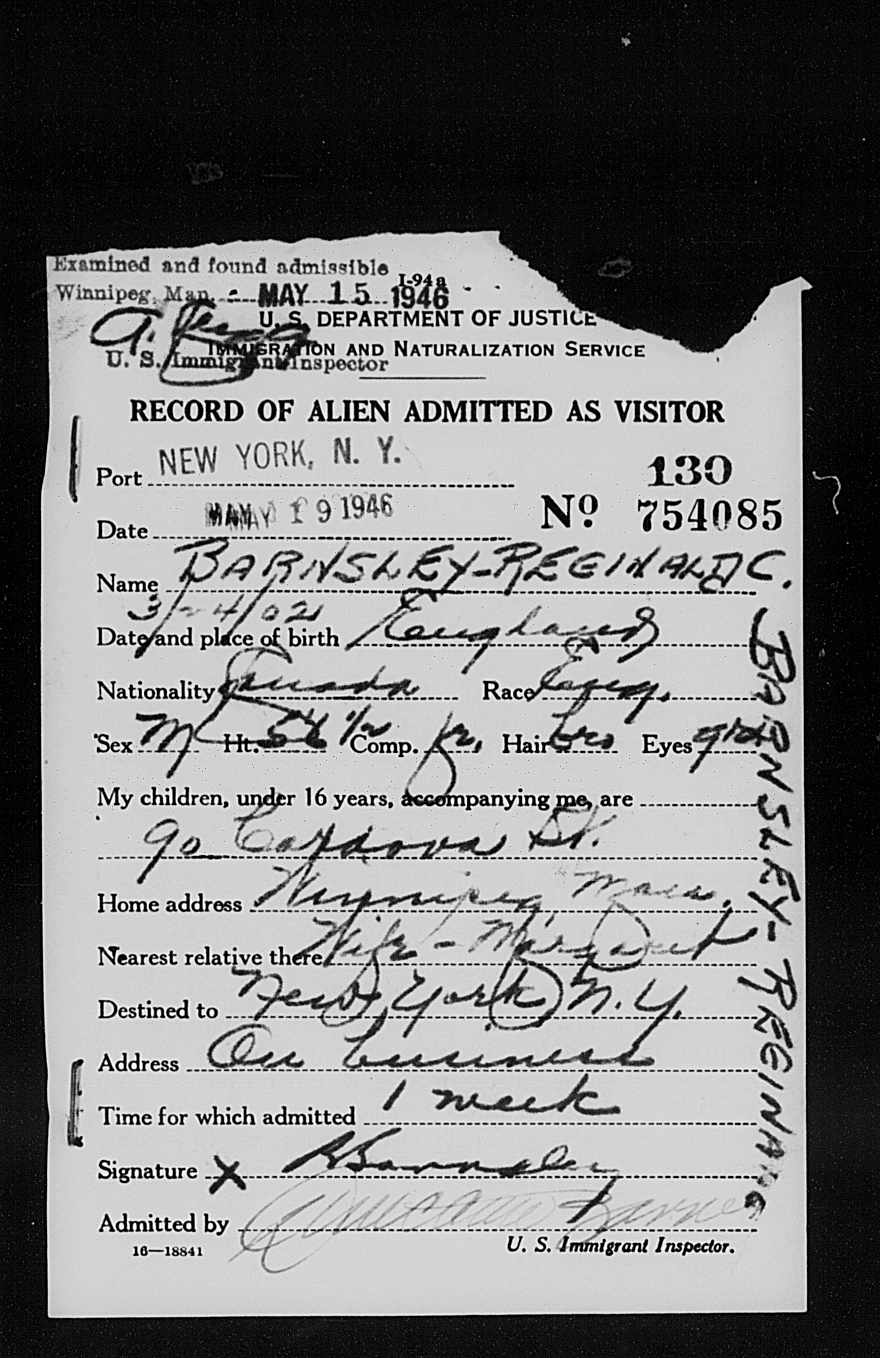 Examined and found admissible
Winnipeg, Man. - MAY 15 1946
I-94a
U. S. DEPARTMENT OF JUSTICE
IMMIGRATION AND NATURALIZATION SERVICE
U. S. Immigrant Inspector
RECORD OF ALIEN ADMITTED AS VISITOR
Port NEW YORK, N. Y.
130
Date MAY 19 1946
No 754085
Name BARNSLEY-REGINALD C.
3/24/02
Date and place of birth England
Nationality Canada Race Eng.
Sex M Ht. 5 6 1/2 Comp. fr. Hair bro Eyes
My children, under 16 years, accompanying me, are
90 Cordova St.
Home address Winnipeg, Man.
Nearest relative there Wife - Margaret
Destined to New York, N.Y.
Address On business
Time for which admitted 1 week
Signature X RBarnsley
Admitted by
16—18841
U. S. Immigrant Inspector.
BARNSLEY-REGINALD C